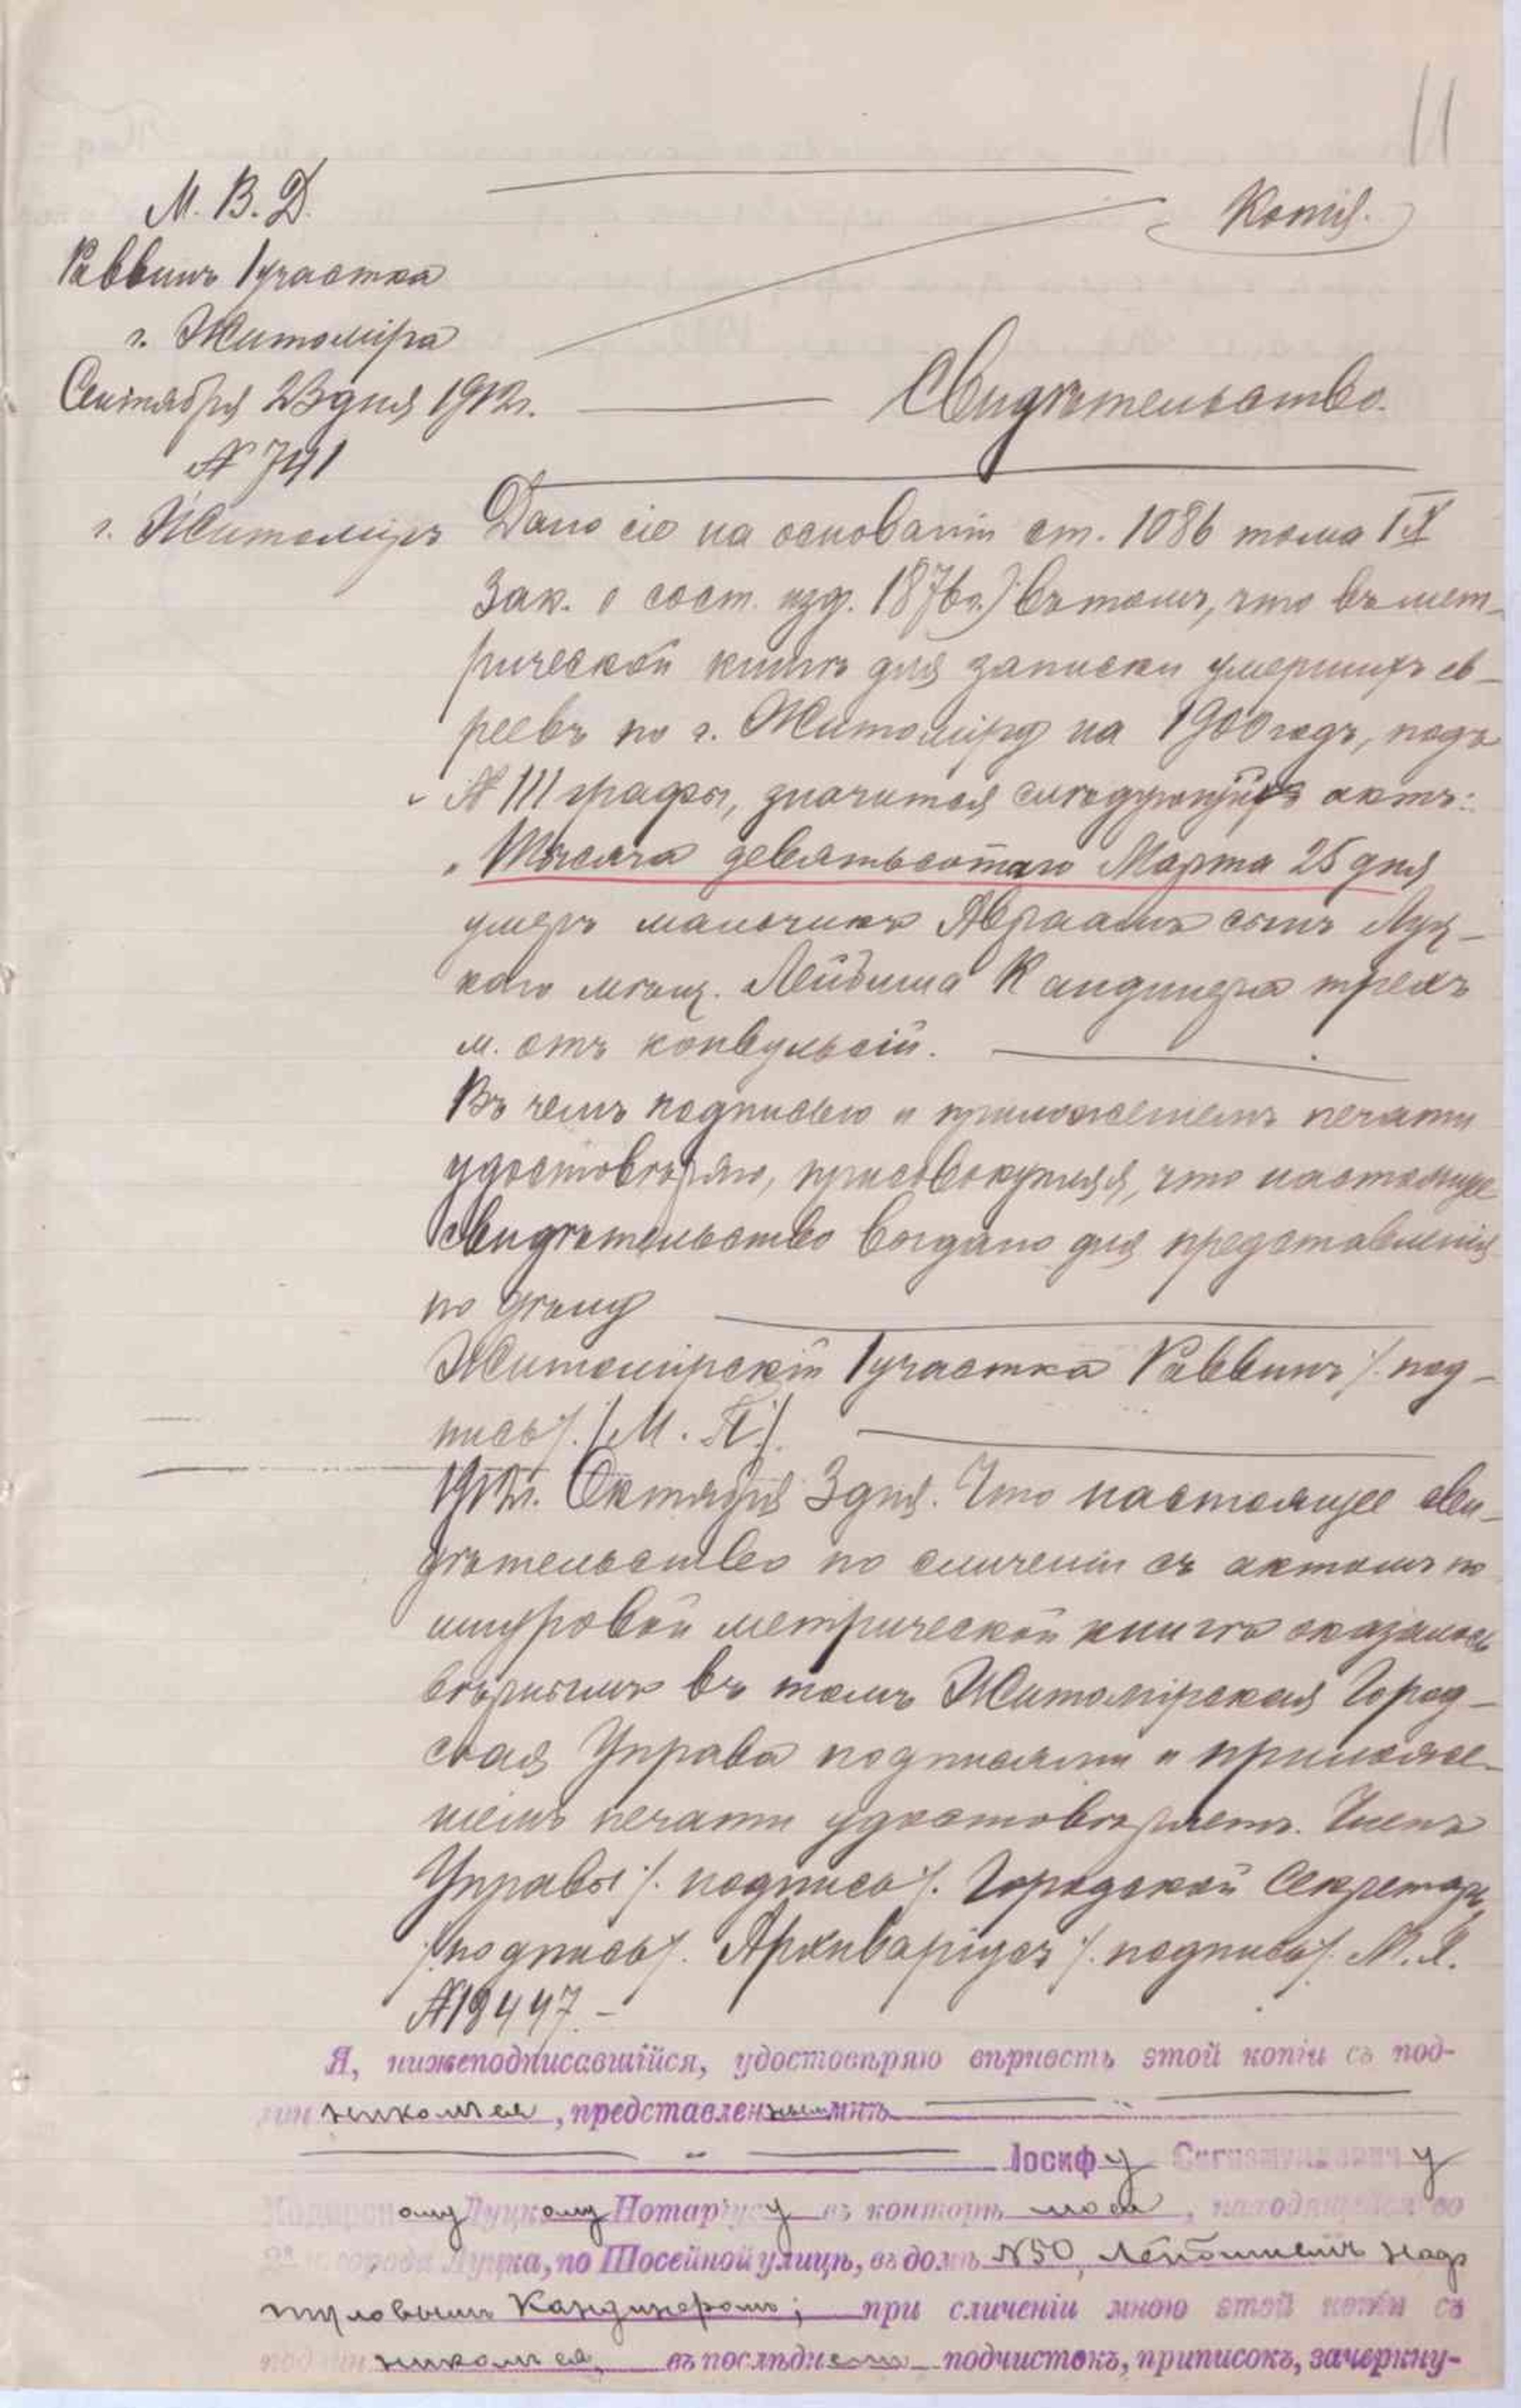 11
М. В. Д.
Копія.
Раввинъ 1 участка
г. Житоміра
Сентября 23 дня 1912 г.
Свидѣтельство.
№ 741
г. Житоміръ
Дано сіе на основаніи ст. 1086 тома IX
Зак. о сост. изд. 1876 г.) въ томъ, что въ мет-
рической книгѣ для записки умершихъ ев-
реевъ по г. Житоміру на 1900 годъ, подъ
№ 111 графы, значится слѣдующій актъ:
„Тысяча девятьсотаго Марта 25 дня
умеръ мальчикъ Авраамъ сынъ Луц-
каго мѣщ. Лейбиша Кандинера трехъ
м. отъ конвульсій.
Въ чемъ подписью и приложеніемъ печати
удостовѣряю, присовокупляя, что настоящее
свидѣтельство выдано для представленія
по дѣлу
Житомірскій 1 участка Раввинъ /. под-
пись /. /М. П./.
1912 г. Октября 3 дня. Что настоящее сви-
дѣтельство по сличеніи съ актомъ по
шнуровой метрической книгѣ оказалось
вѣрнымъ въ томъ Житомірская Город-
ская Управа подписями и приложе-
ніемъ печати удостовѣряетъ. Членъ
Управы /. подпись /. Городской Секретарь
/. подпись /. Архиваріусъ /. подпись /. М. П.
№ 18447. –
Я, нижеподписавшійся, удостовѣряю вѣрность этой копіи съ под-
линникомъ ея, представленнымъ мнѣ
Іосифу Сигизмундовичу
ому Луцкому Нотаріусу въ конторѣ моей, находящейся во
2й ч. города Луцка, по Шосейной улицѣ, въ домѣ №50, Лейбишемъ
Кандинеромъ; при сличеніи мною этой копіи съ
подлинникомъ ея, въ послѣднемъ подчистокъ, приписокъ, зачеркну-